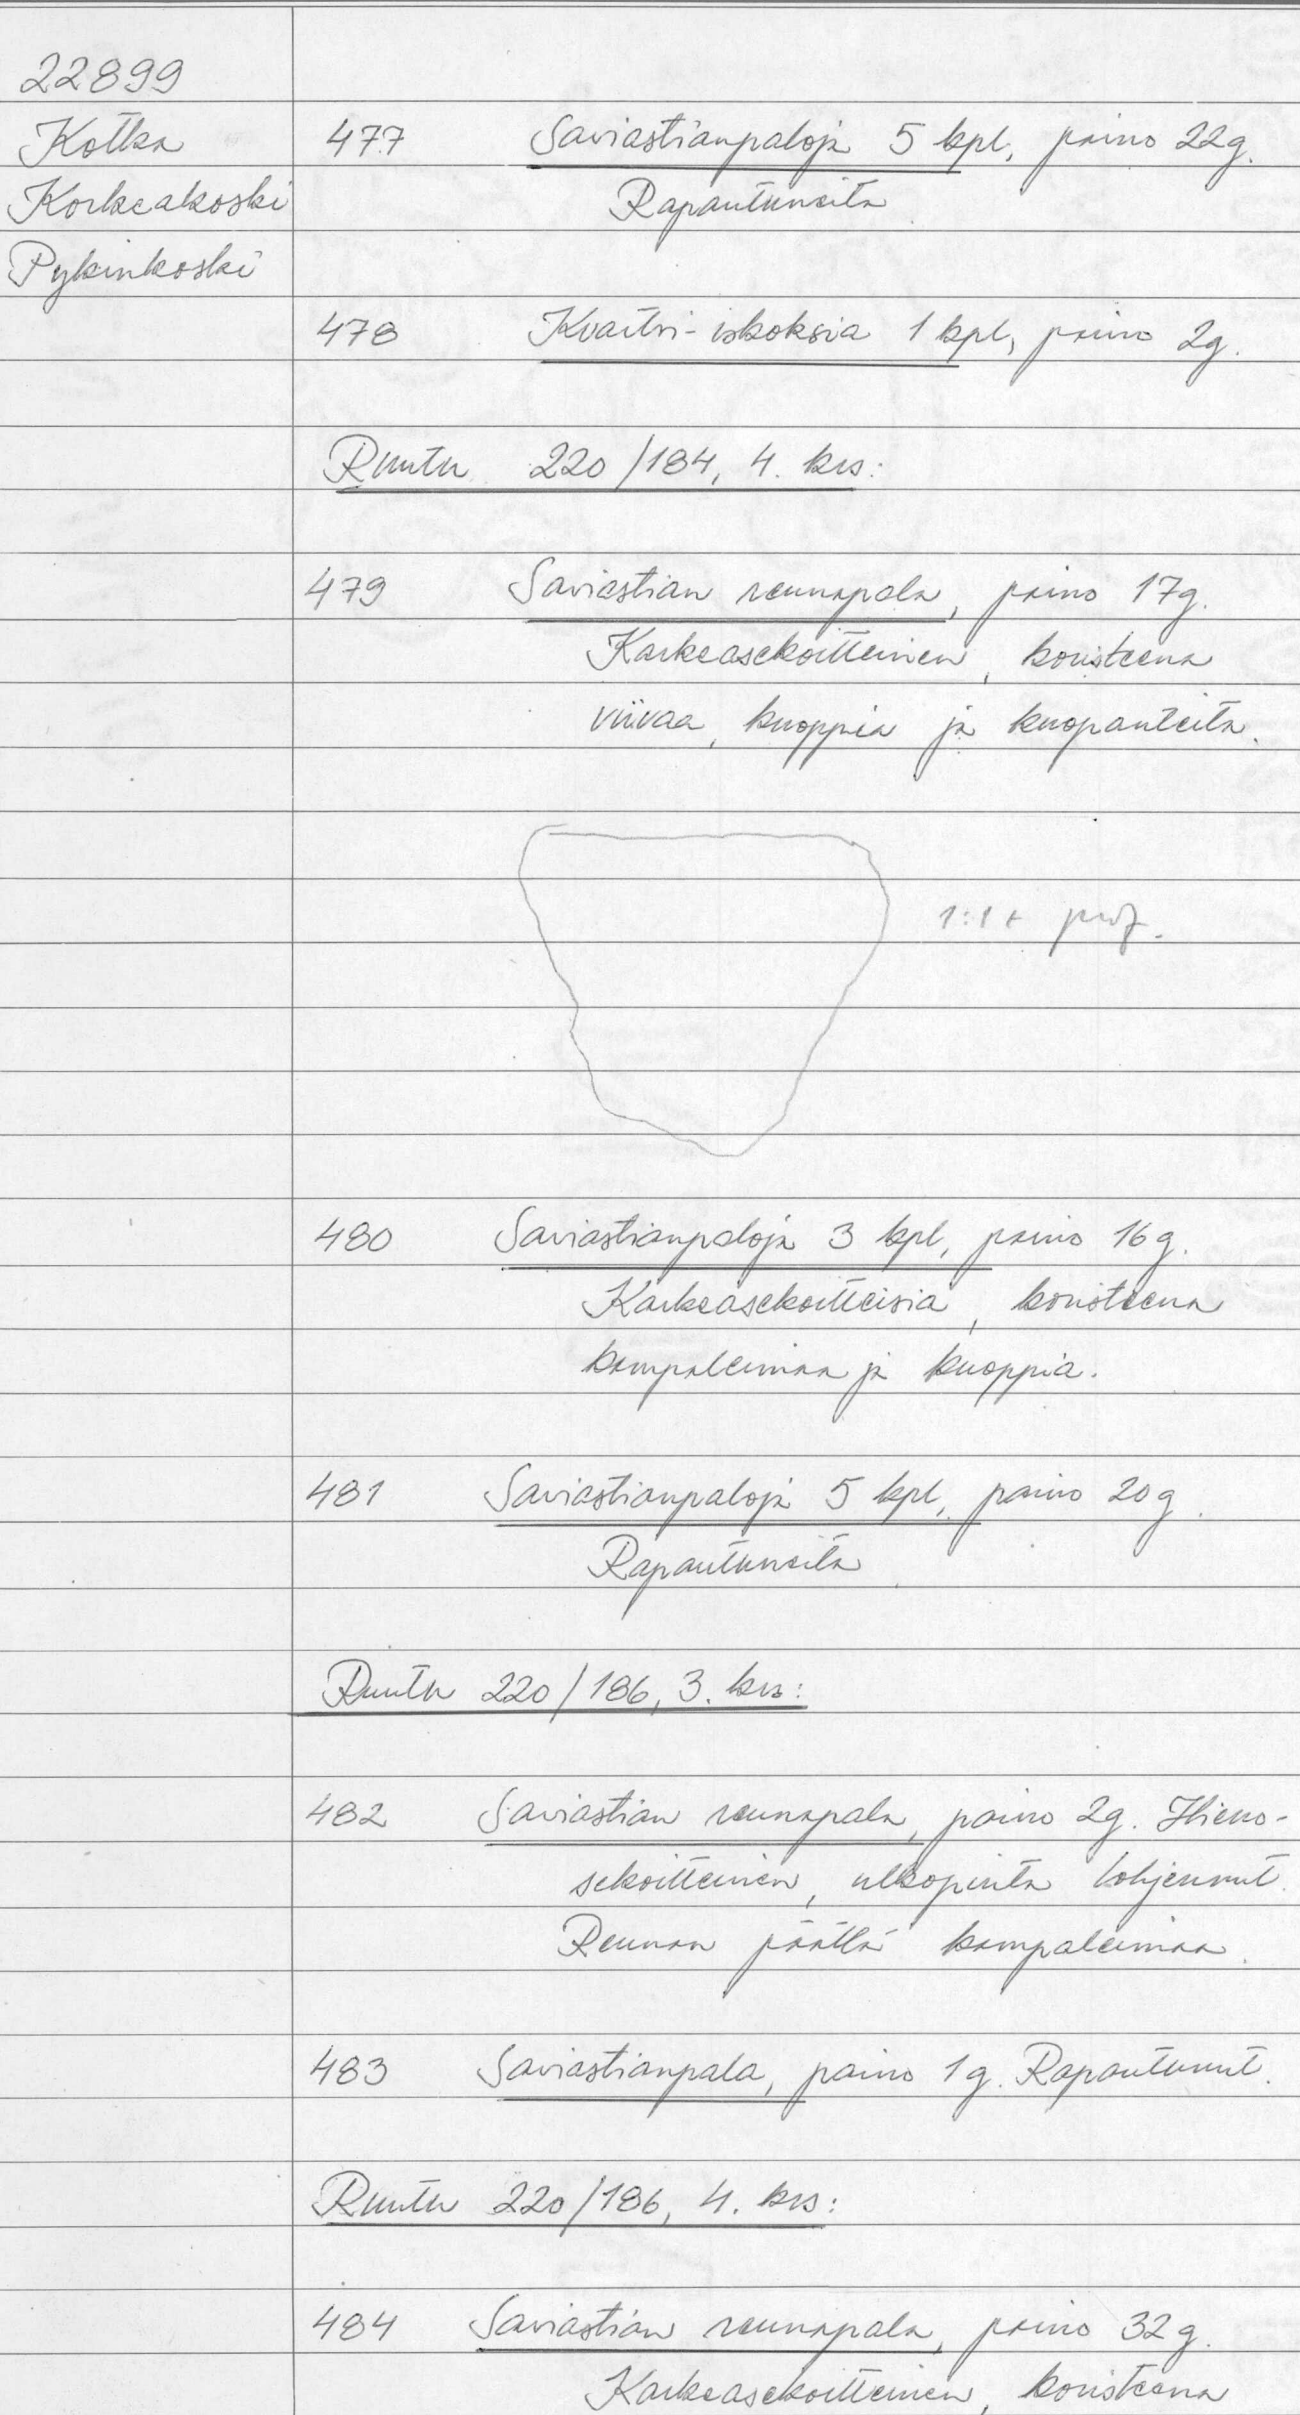 22899
Kotka
Korkeakoski
Pykinkoski
477 Saviastianpaloja 5 kpl, paino 22g.
Rapautuneita
478 Kvartsi-iskoksia 1 kpl, paino 2g.
Ruutu 220/184, 4. krs:
479 Saviastian reunapala, paino 17g.
Karkeasekoitteinen, koristeena
viivaa, kuoppia ja kuopanteita.
1:1 + prof.
480 Saviastianpaloja 3 kpl, paino 16g.
Karkeasekoitteisia, koristeena
kampaleimaa ja kuoppia.
481 Saviastianpaloja 5 kpl, paino 20g.
Rapautuneita
Ruutu 220/186, 3. krs:
482 Saviastian reunapala, paino 2g. Hieno-
sekoitteinen, ulkopinta lohjennut.
Reunan päällä kampaleimaa.
483 Saviastianpala, paino 1g. Rapautunut.
Ruutu 220/186, 4. krs:
484 Saviastian reunapala, paino 32g.
Karkeasekoitteinen, koristeena